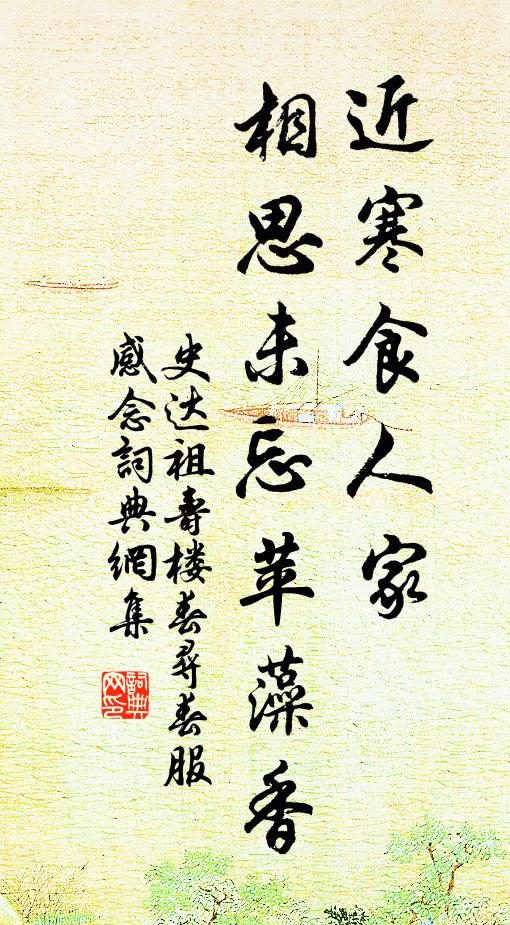 近寒食人家
相思未忘苹藻香
史达祖壽楼春尋春服
感念詞典網集
詞典
网印